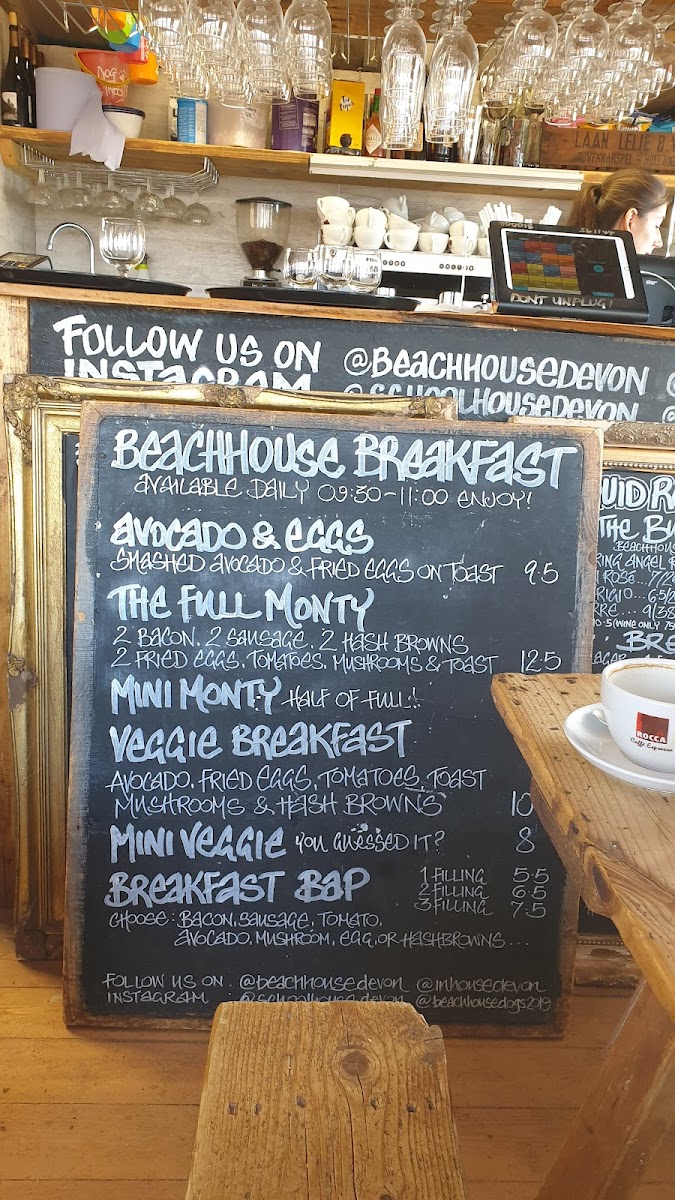 DOG
LAAN LELIE B.V
DON'T UNPLUG!
FOLLOW US ON @BEACHHOUSEDEVON
INSTAGRAM @SCHOOLHOUSEDEVON
BEACHHOUSE BREAKFAST
AVAILABLE DAILY 09:30-11:00 ENJOY!
AVOCADO & EGGS
SMASHED AVOCADO & FRIED EGGS ON TOAST 9.5
THE FULL MONTY
2 BACON, 2 SAUSAGE, 2 HASH BROWNS
2 FRIED EGGS, TOMATOES, MUSHROOMS & TOAST 12.5
MINI MONTY HALF OF FULL!
VEGGIE BREAKFAST
AVOCADO, FRIED EGGS, TOMATOES, TOAST
MUSHROOMS & HASH BROWNS 10
MINI VEGGIE YOU GUESSED IT? 8
BREAKFAST BAP 1 FILLING 5.5
2 FILLING 6.5
3 FILLING 7.5
CHOOSE: BACON, SAUSAGE, TOMATO,
AVOCADO, MUSHROOM, EGG, OR HASHBROWNS...
FOLLOW US ON : @beachhousedevon @inhousedevon
INSTAGRAM @schoolhouse.devon @beachhousedogs2019
THE
BEACHHOUSE
ANGEL
ROSÉ... 7/2
(WINE ONLY
ROCCA
Caffè Espresso